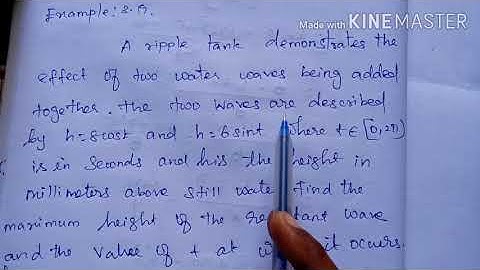 Example: 3.19.
Made with KINEMASTER
A ripple tank demonstrates the
effect of two water waves being added
together. The two waves are described
by h=8cost and h=6sint where t∈[0,2π)
is in seconds and h is the height in
millimeters above still water find the
maximum height of the resultant wave
and the value of t at it occurs.